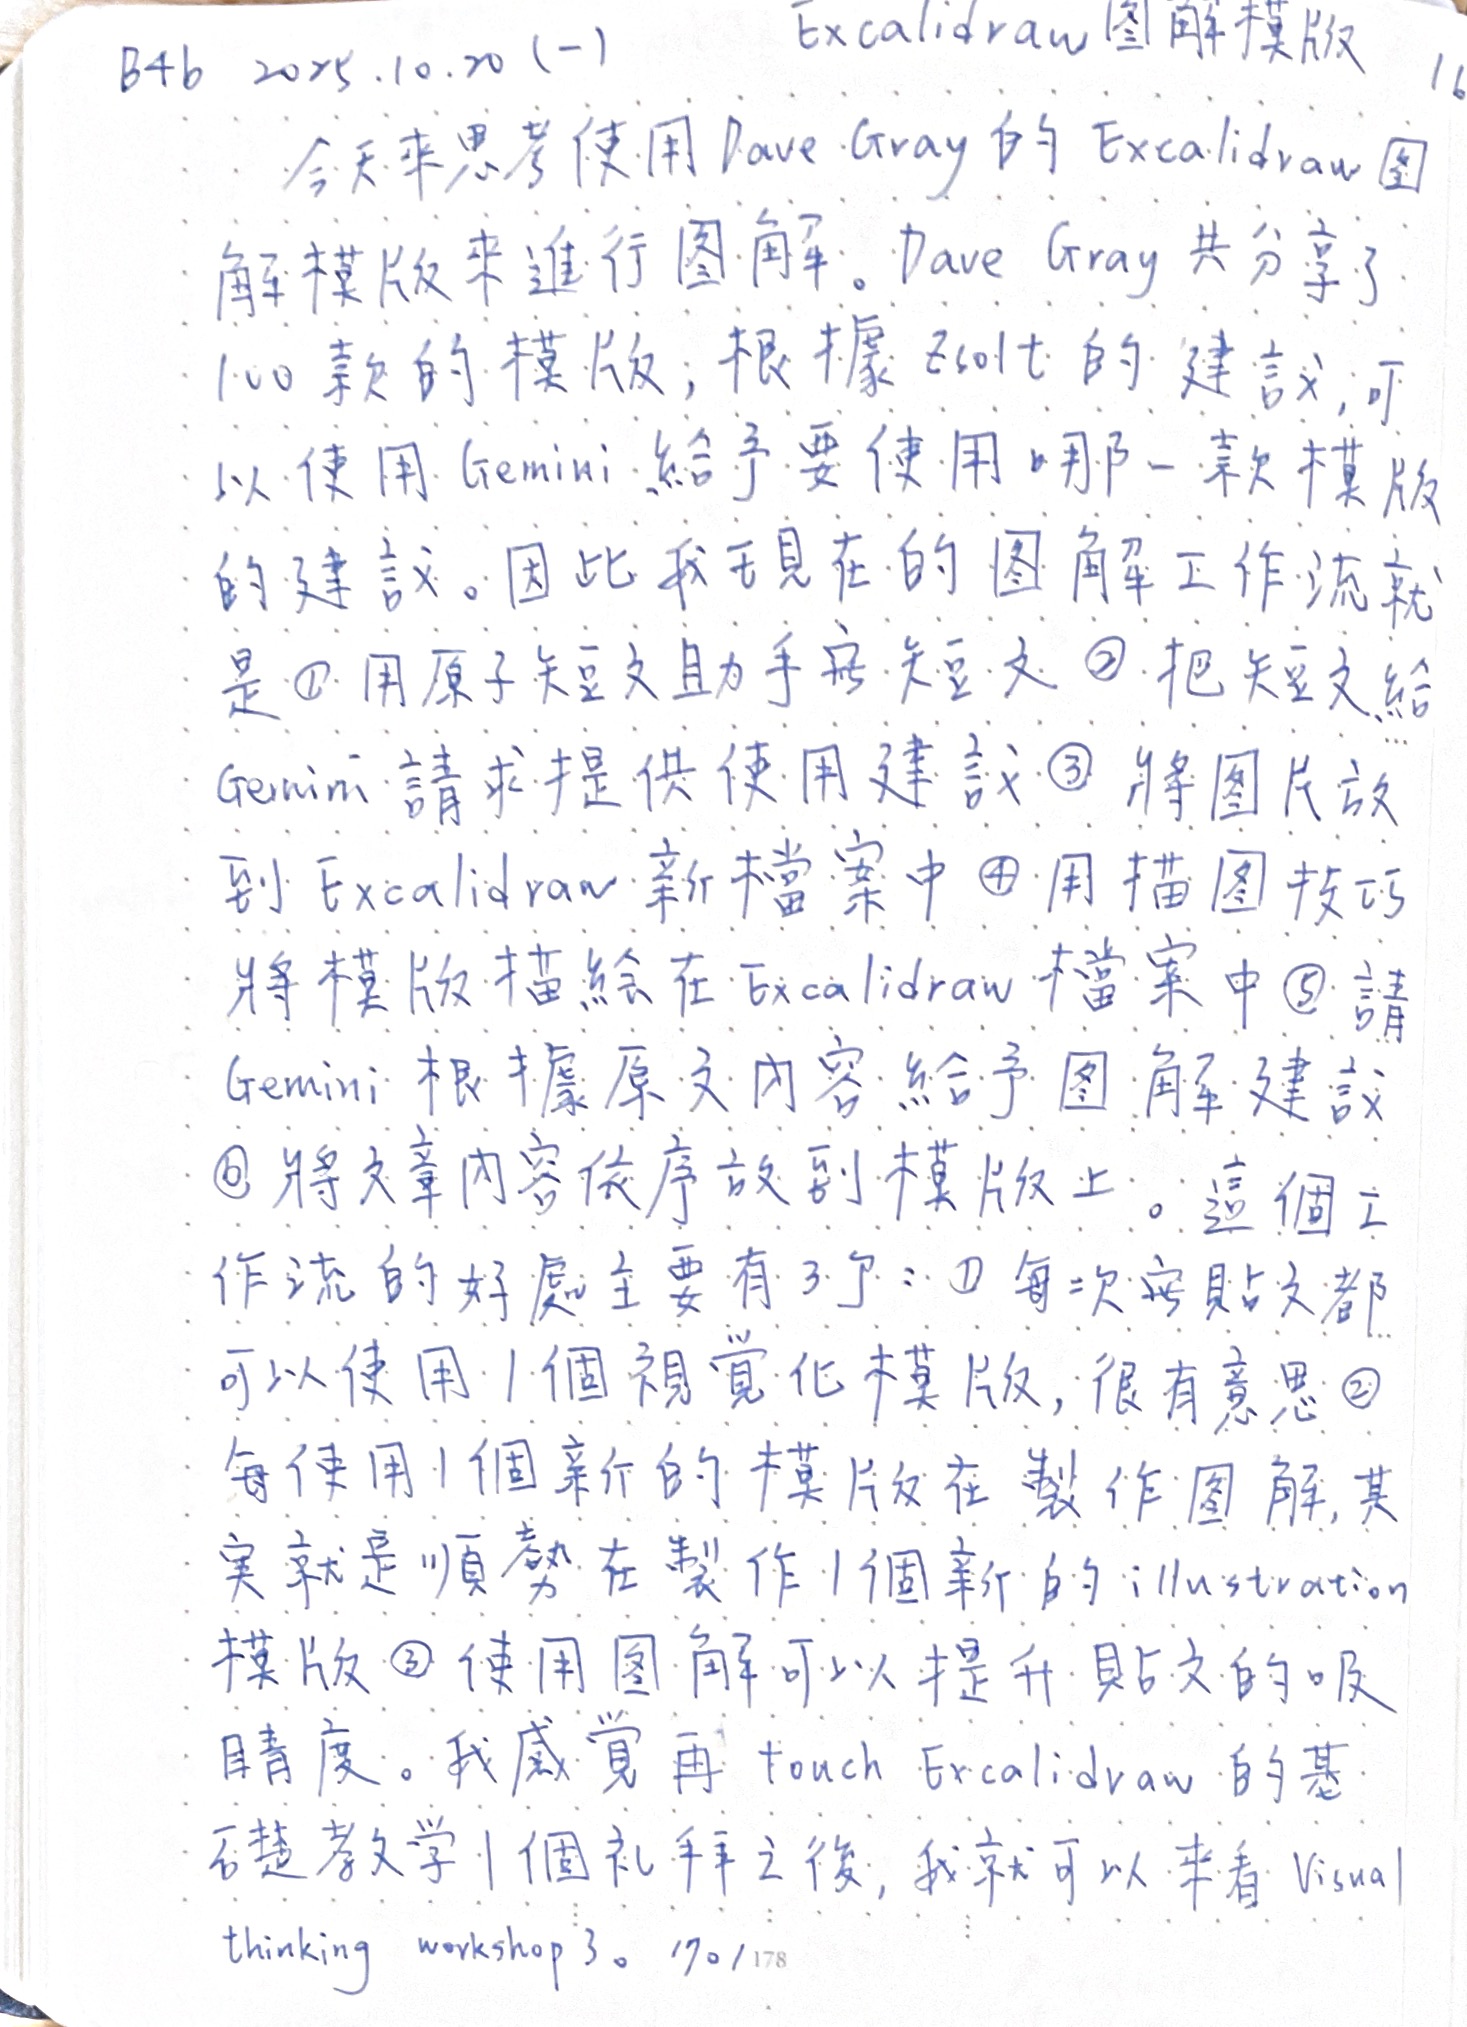 B46 2025.10.20 (一) Excalidraw 図解模版 16
今天來思考使用 Dave Gray 的 Excalidraw 図
解模版來進行図解。Dave Gray 共分享了
100 款的模版，根據 Zsolt 的建议，可
以使用 Gemini 給予要使用哪一款模版
的建议。因此我現在的図解工作流就
是 ① 用原子短文助手寫短文 ② 把短文給
Gemini 請求提供使用建议 ③ 將図片放
到 Excalidraw 新檔案中 ④ 用描図技巧
將模版描絵在 Excalidraw 檔案中 ⑤ 請
Gemini 根據原文內容給予図解建议
⑥ 將文章內容依序放到模版上。這個工
作流的好處主要有3個：① 每次寫貼文都
可以使用1個視覚化模版，很有意思 ②
每使用1個新的模版在製作図解，其
実就是順勢在製作1個新的 illustration
模版 ③ 使用図解可以提升貼文的吸
睛度。我感覚再 touch Excalidraw 的基
石楚教学1個礼拜之後，我就可以來看 Visual
thinking workshop 3。1701
178